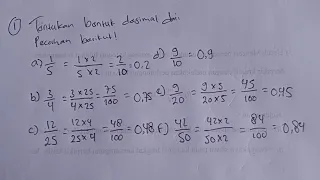 ① Tentukan bentuk desimal dari
Pecahan berikut!
a) 1/5 = 1×2/5×2 = 2/10 = 0,2 d) 9/10 = 0,9
b) 3/4 = 3×25/4×25 = 75/100 = 0,75 e) 9/20 = 9×5/20×5 = 45/100 = 0,45
c) 12/25 = 12×4/25×4 = 48/100 = 0,48 F) 42/50 = 42×2/50×2 = 84/100 = 0,84